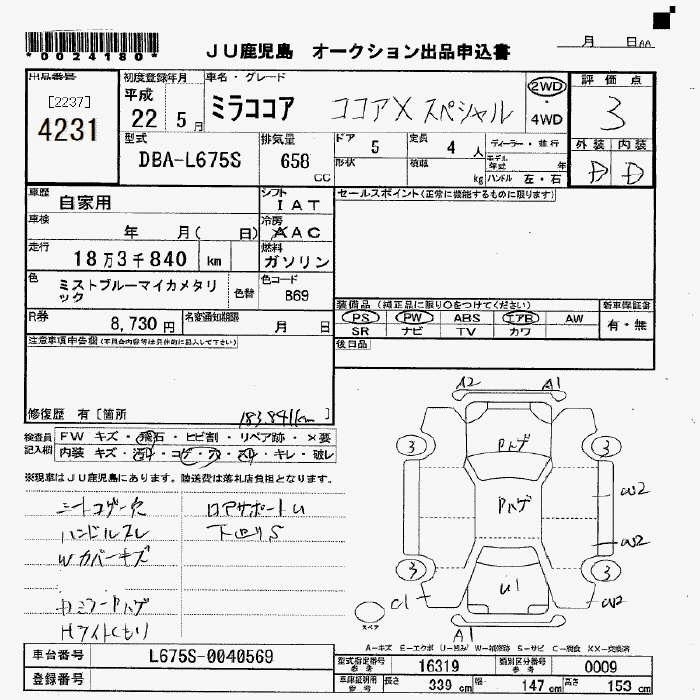 *00241180*
JU鹿児島 オークション出品申込書
月 日AA
出品番号
[2237]
4231
初度登録年月
平成
22 5月
車名・グレード
ミラココア ココアX スペシャル
2WD
・
4WD
評価点
3
外装 内装
D D
型式
DBA-L675S
排気量
658
CC
ドア 5
定員 4人
ディーラー・並行
形状
積載 kg
モデル年式 年
ハンドル 左・右
車歴
自家用
シフト
IAT
セールスポイント(正常に機能するものに限ります)
車検
年 月( 日)
冷房
AAC
走行
18万3千840 km
燃料
ガソリン
色
ミストブルーマイカメタリック
色替
色コード
B69
装備品(純正品に限り○をつけてください)
新車保証書
PS PW ABS エアB AW
有・無
SR ナビ TV カワ
R券
8,730円
名変通知期限
月 日
後日品
注意事項申告欄(不具合内容等は具体的に記入して下さい)
修復歴 有[箇所
183,841km)
検査員
記入欄
FW キズ・飛石・ヒビ割・リペア跡・×要
内装 キズ・汚れ・コゲ・穴・スレ・キレ・破レ
※現車はJU鹿児島にあります。陸送費は落札店負担となります。
シートコゲ穴
ロアサポートU
ハンドルスレ
下回りS
Wカバーキズ
ドミラーPハゲ
Hライトくもり
A2 A1
3 3
Pハゲ
Pハゲ
W2
W2
3 3
U1
C1
W2
A1
スペア
A-キズ E-エクボ U-凹み W-補修跡 S-サビ C-腐食 XX-交換済
車台番号
L675S-0040569
登録番号
型式指定番号
参考
16319
類別区分番号
参考
0009
車庫証明用
参考
長さ 339cm
幅 147cm
高さ 153cm